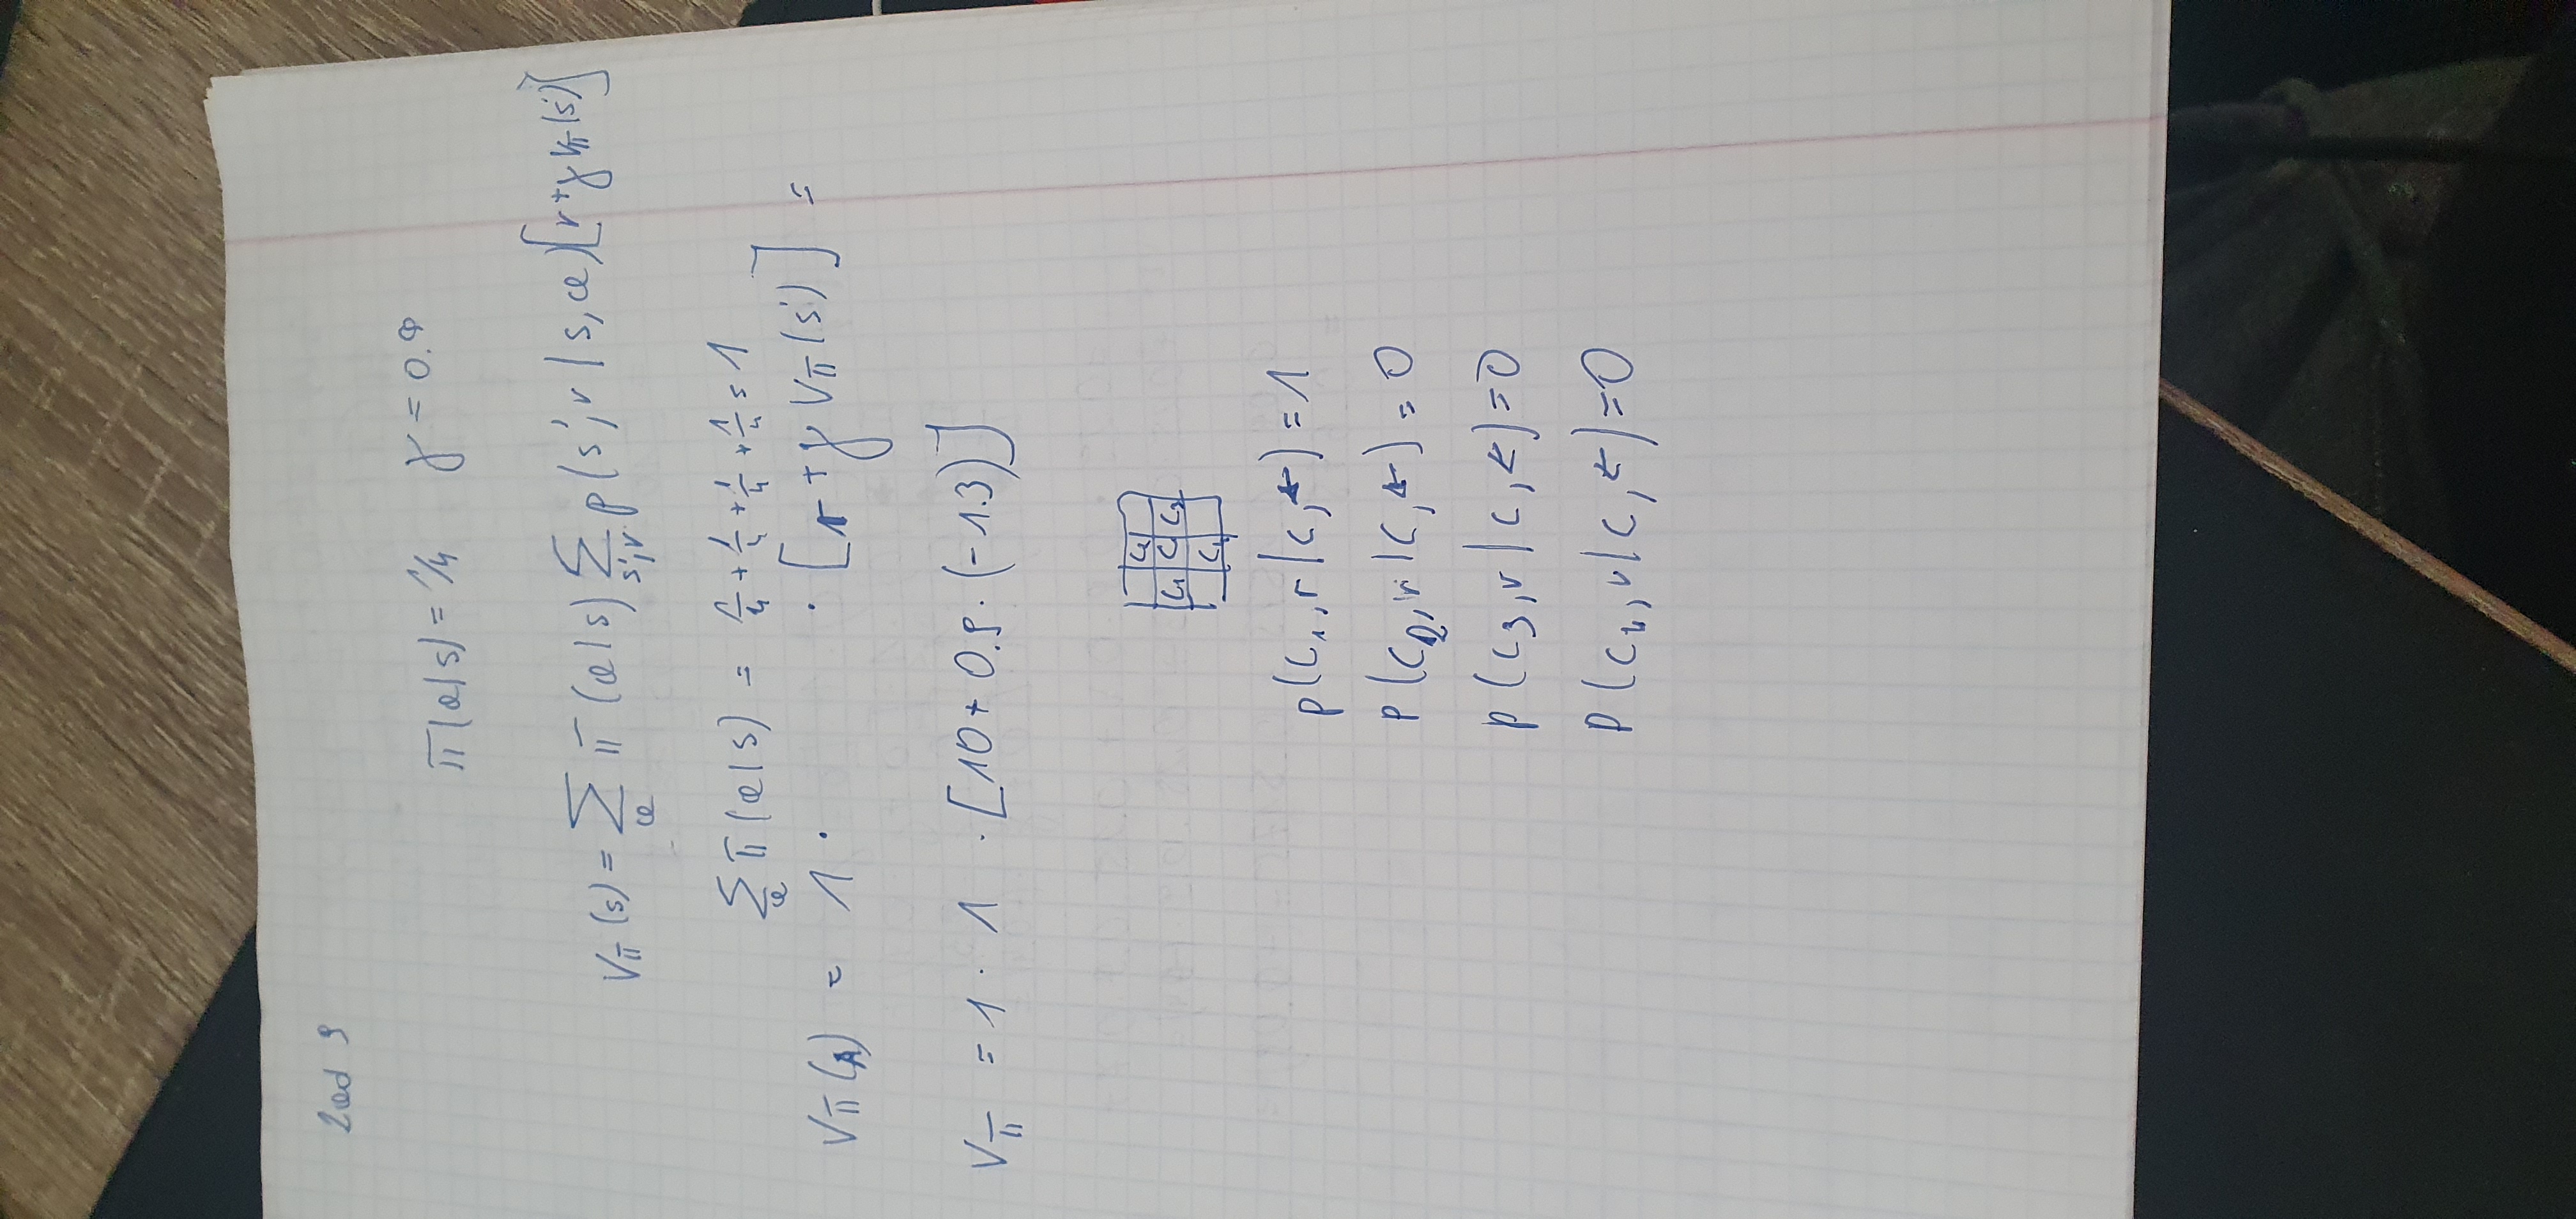 Zad 9
π(a|s) = 1/4 γ = 0.9
Vπ(s) = Σ_a π(a|s) Σ_{s',r} p(s',r|s,a)[r+γVπ(s')]
Σ_a π(a|s) = 1/4 + 1/4 + 1/4 + 1/4 = 1
Vπ(A) = 1 · · [r + γ Vπ(s')] =
Vπ = 1 · 1 · [10 + 0.9 · (-1.3)]
C₁ C C₂
C₄
p(C₁,r|C,←) = 1
p(C₂,r|C,←) = 0
p(C₃,r|C,←) = 0
p(C₄,r|C,←) = 0